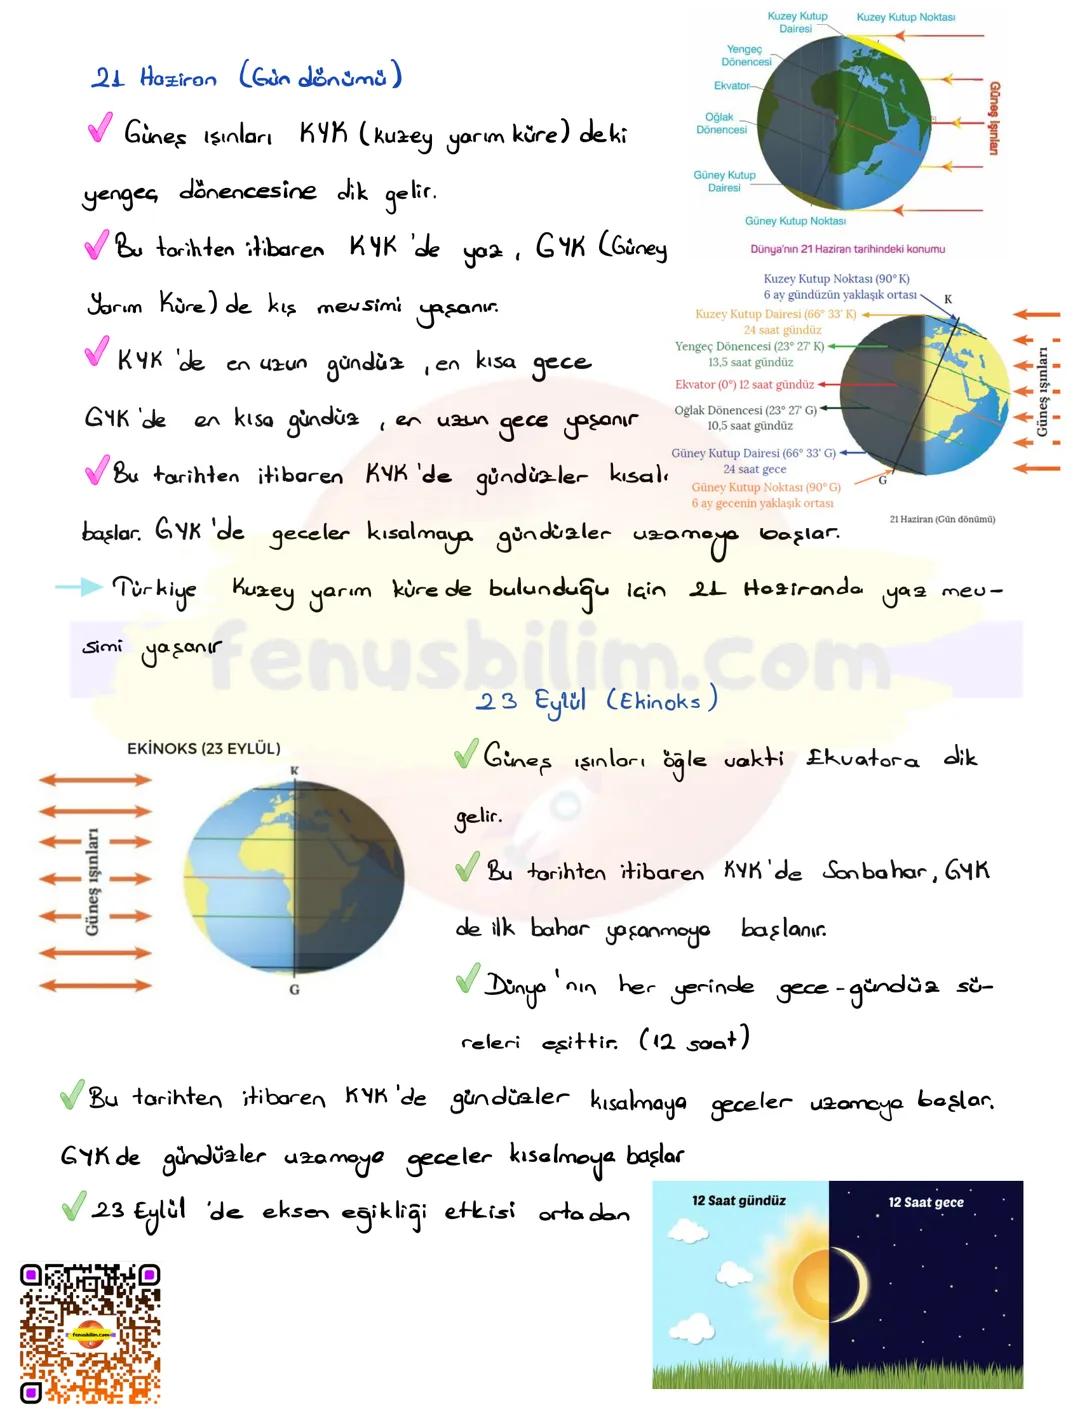 21 Haziran (Gün dönümü)
Güneş ışınları KYK (kuzey yarım küre) deki
yengeç dönencesine dik gelir.
Bu tarihten itibaren KYK 'de yaz, GYK (Güney
Yarım Küre) de kış mevsimi yaşanır.
KYK 'de en uzun gündüz, en kısa gece
GYK 'de en kısa gündüz, en uzun gece yaşanır
Bu tarihten itibaren KYK 'de gündüzler kısalı
başlar. GYK 'de geceler kısalmaya gündüzler uzamaya başlar.
Türkiye Kuzey yarım kürede bulunduğu için 21 Haziranda yaz mev-
simi yaşanır
Kuzey Kutup Dairesi
Kuzey Kutup Noktası
Yengeç Dönencesi
Ekvator
Oğlak Dönencesi
Güney Kutup Dairesi
Güney Kutup Noktası
Güneş ışınları
Dünya'nın 21 Haziran tarihindeki konumu
Kuzey Kutup Noktası (90° K)
6 ay gündüzün yaklaşık ortası
K
Kuzey Kutup Dairesi (66° 33' K)
24 saat gündüz
Yengeç Dönencesi (23° 27' K)
13,5 saat gündüz
Ekvator (0°) 12 saat gündüz
Oğlak Dönencesi (23° 27' G)
10,5 saat gündüz
Güney Kutup Dairesi (66° 33' G)
24 saat gece
Güney Kutup Noktası (90° G)
6 ay gecenin yaklaşık ortası
G
Güneş ışınları
21 Haziran (Gün dönümü)
fenusbilim.com
23 Eylül (Ekinoks)
Güneş ışınları öğle vakti Ekvatora dik
gelir.
Bu tarihten itibaren KYK 'de Sonbahar, GYK
de ilk bahar yaşanmaya başlanır.
Dünya 'nın her yerinde gece-gündüz sü-
releri eşittir. (12 saat)
EKİNOKS (23 EYLÜL)
K
Güneş ışınları
G
Bu tarihten itibaren KYK 'de gündüzler kısalmaya geceler uzamaya başlar.
GYK de gündüzler uzamaya geceler kısalmaya başlar
23 Eylül 'de eksen eğikliği etkisi ortadan
12 Saat gündüz
12 Saat gece
fenusbilim.com